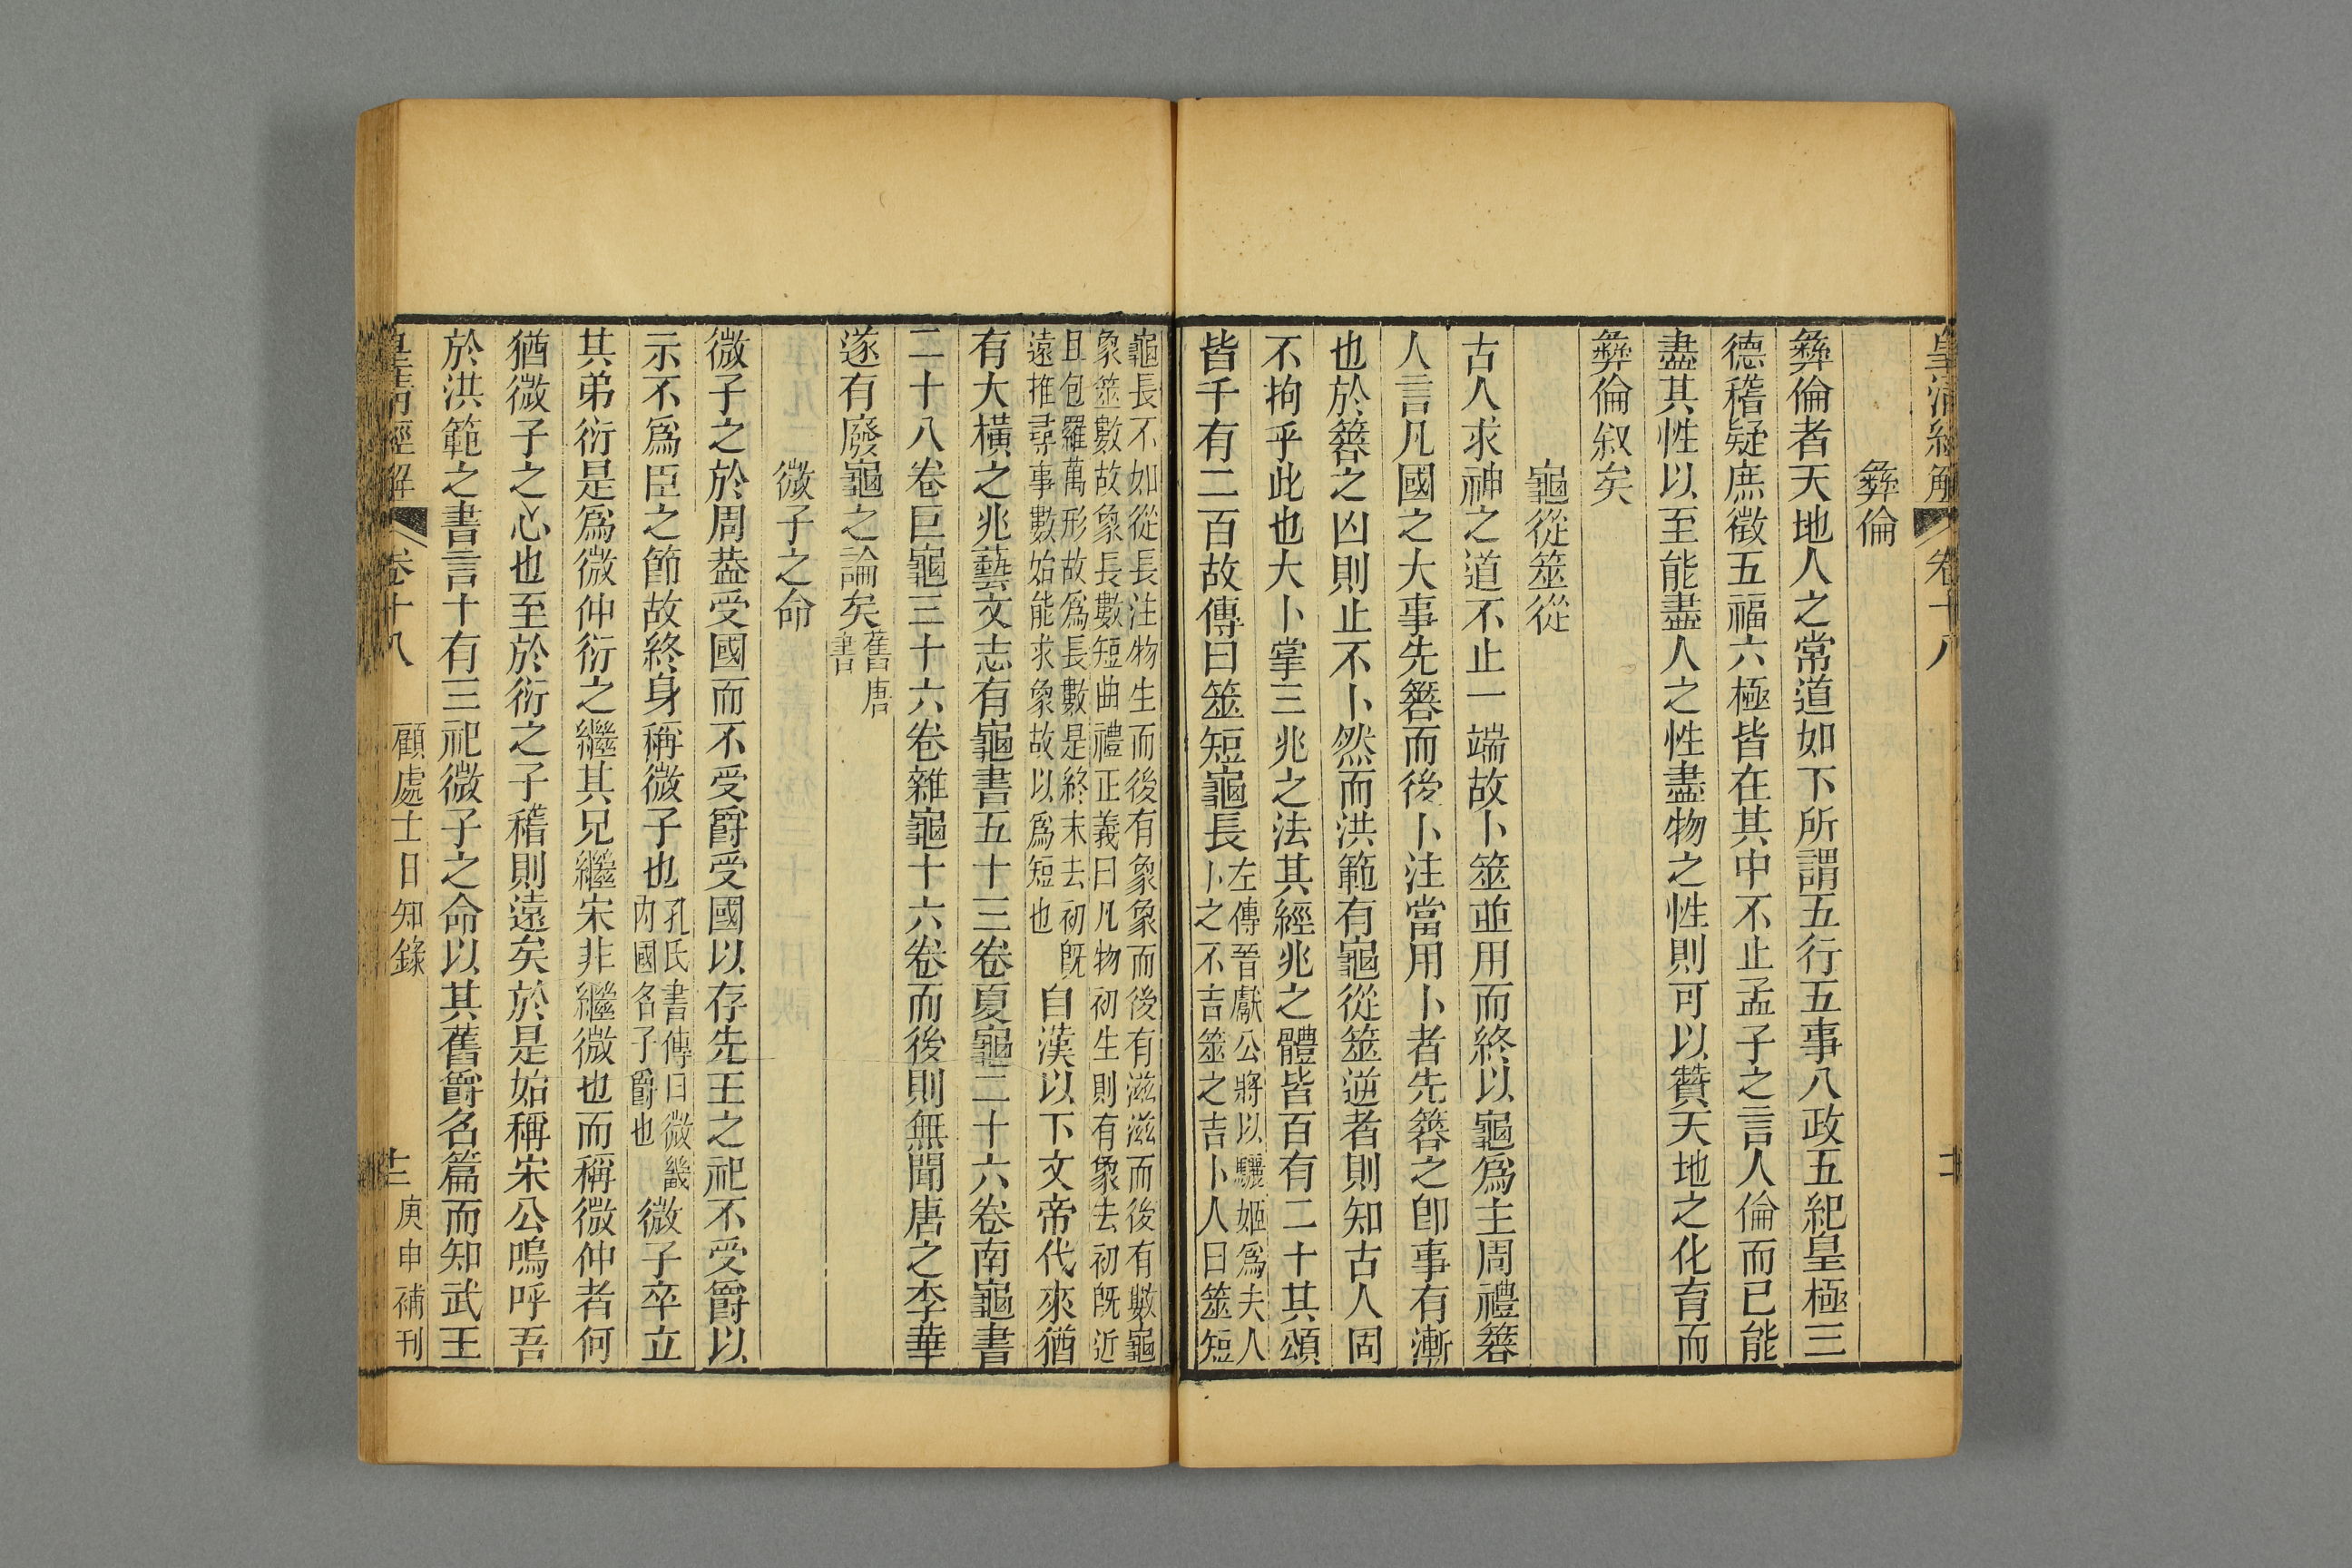 皇清經解 卷十八
彝倫
彝倫者天地人之常道如下所謂五行五事八政五紀皇極三
德稽疑庶徵五福六極皆在其中不止孟子之言人倫而已能
盡其性以至能盡人之性盡物之性則可以贊天地之化育而
彝倫叙矣
龜從筮從
古人求神之道不止一端故卜筮並用而終以龜爲主周禮簭
人言凡國之大事先簭而後卜注當用卜者先簭之卽事有漸
也於簭之凶則止不卜然而洪範有龜從筮逆者則知古人固
不拘乎此也大卜掌三兆之法其經兆之體皆百有二十其頌
皆千有二百故傳曰筮短龜長左傳晉獻公將以驪姬爲夫人卜之不吉筮之吉卜人曰筮短
龜長不如從長注物生而後有象象而後有滋滋而後有數龜
象筮數故象長數短曲禮正義曰凡物初生則有象去初旣近
且包羅萬形故爲長數是終末去初旣
遠推尋事數始能求象故以爲短也自漢以下文帝代來猶
有大橫之兆藝文志有龜書五十三卷夏龜二十六卷南龜書
二十八卷巨龜三十六卷雜龜十六卷而後則無聞唐之李華
遂有廢龜之論矣舊唐書
微子之命
微子之於周葢受國而不受爵受國以存先王之祀不受爵以
示不爲臣之節故終身稱微子也孔氏書傳曰微畿內國名子爵也微子卒立
其弟衍是爲微仲衍之繼其兄繼宋非繼微也而稱微仲者何
猶微子之心也至於衍之子稽則遠矣於是始稱宋公嗚呼吾
於洪範之書言十有三祀微子之命以其舊爵名篇而知武王
皇清經解 卷十八 顧處士日知錄 十二 庚申補刊